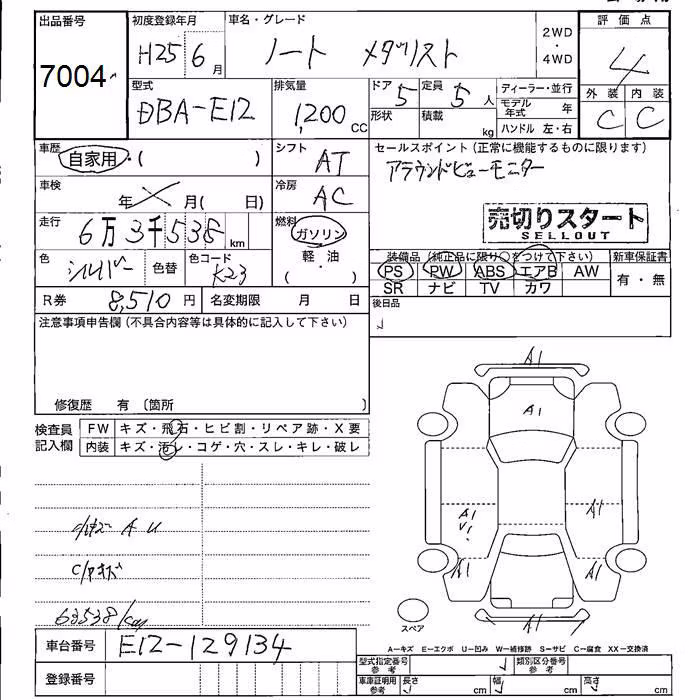 出品番号
7004
初度登録年月
H25 6 月
車名・グレード
ノート メダリスト
2WD
・
4WD
評価点
4
外装 内装
C C
型式
DBA-E12
排気量
1,200 CC
ドア 5
形状
定員 5 人
積載 kg
ディーラー・並行
モデル年式 年
ハンドル 左・右
車歴
自家用・( )
シフト
AT
車検
年 月( 日)
冷房
AC
走行
6万3千538 km
燃料
ガソリン
軽・油
( )
色
シルバー
色替
色コード
K23
R券 8,510 円
名変期限 月 日
セールスポイント(正常に機能するものに限ります)
アラウンドビューモニター
売切りスタート
SELLOUT
装備品(純正品に限り○をつけて下さい)
PS PW ABS エアB AW
SR ナビ TV カワ
新車保証書
有・無
後日品
注意事項申告欄(不具合内容等は具体的に記入して下さい)
修復歴 有〔箇所 〕
検査員
記入欄
FW キズ・飛石・ヒビ割・リペア跡・X要
内装 キズ・汚レ・コゲ・穴・スレ・キレ・破レ
A U
63538/km
A1
A1
A1
V1
A1
A1
A1
A1
スペア
A―キズ E―エクボ U―凹み W―補修跡 S―サビ C―腐食 XX―交換済
車台番号 E12-129134
登録番号
型式指定番号
参考
類別区分番号
参考
車庫証明用
参考
長さ cm
幅 cm
高さ cm